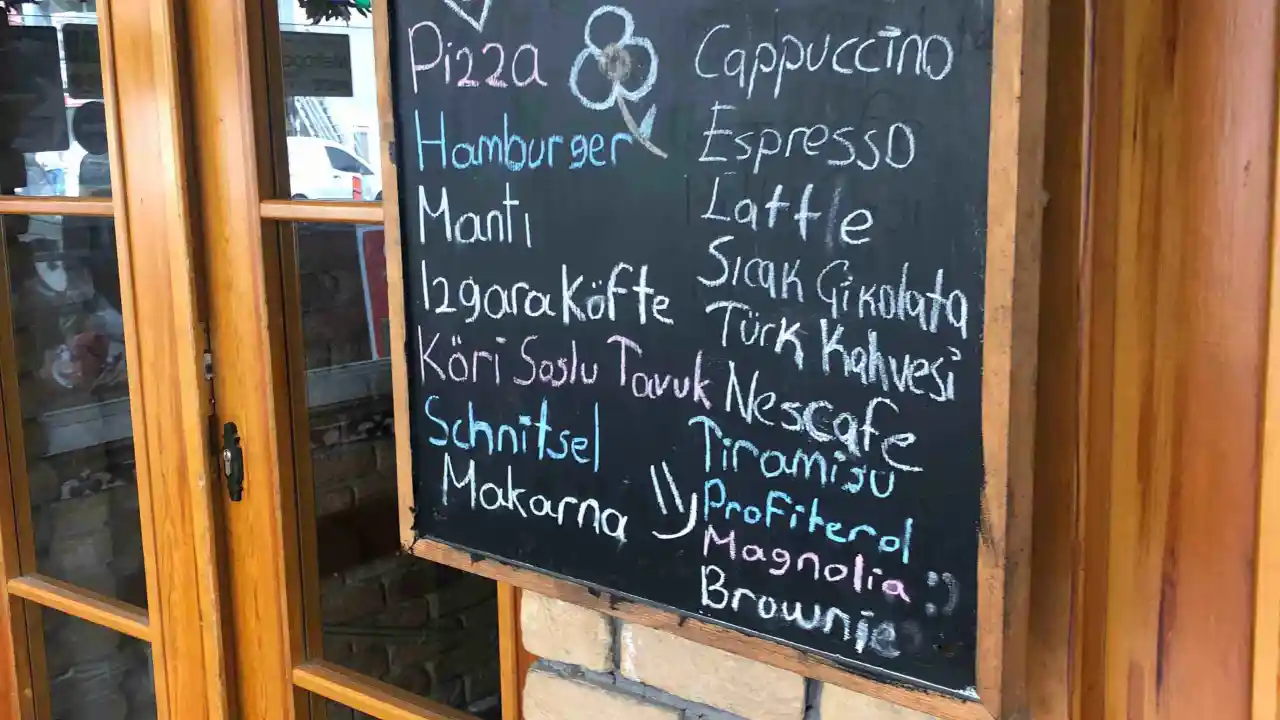 Pizza
Hamburger
Mantı
Izgara Köfte
Köri Soslu Tavuk
Schnitsel
Makarna
Cappuccino
Espresso
Latfle
Sıcak Çikolata
Türk Kahvesi
Nescafe
Tiramisu
Profiterol
Magnolia :)
Brownie